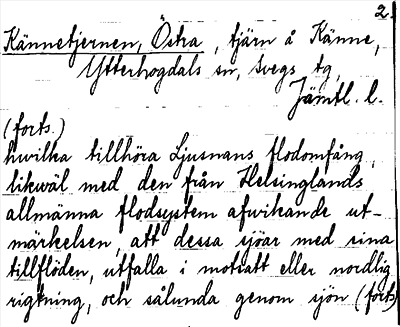 2.
Kännetjernen, Östra, tjärn å Känne,
Ytterhogdals sn, Svegs tg,
Jämtl. l.
(forts.)
hwilka tillhöra Ljusnans flodomfång,
likwäl med den från Helsinglands
allmänna flodsystem afwikande ut-
märkelsen, att dessa sjöar med sina
tillflöden, utfalla i motsatt eller nordlig
rigtning, och sålunda genom sjön (forts)